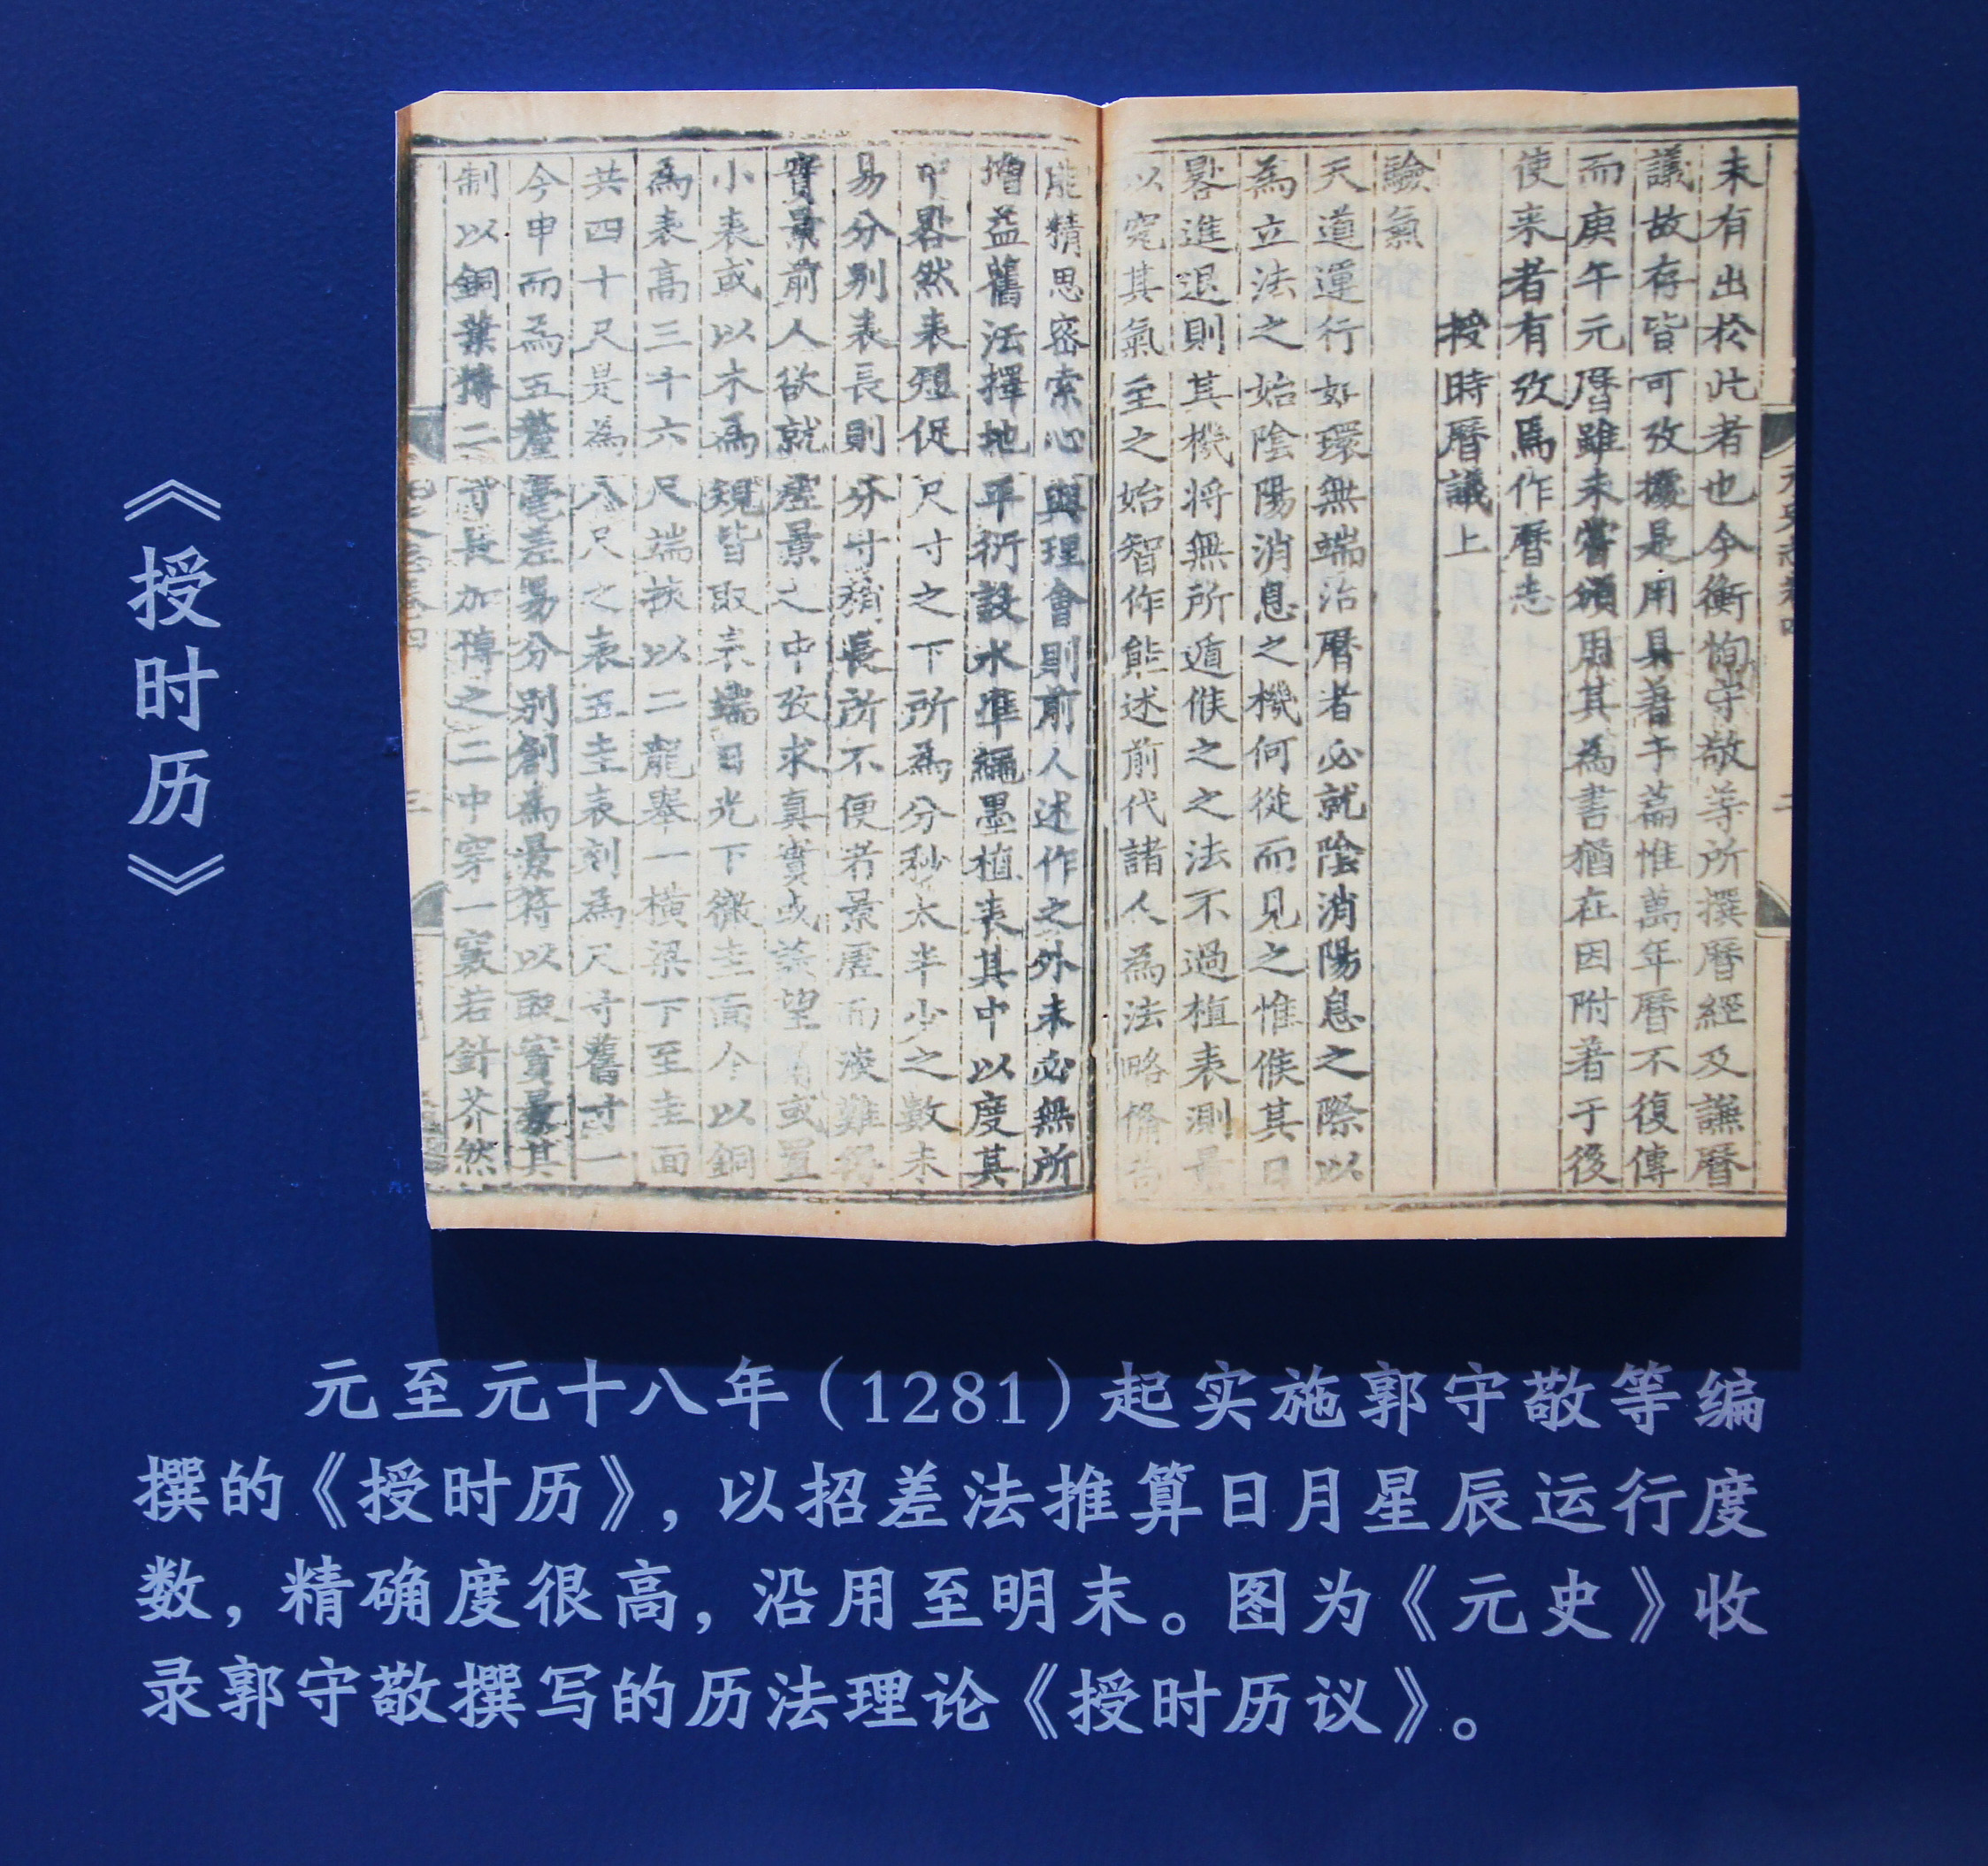 《授时历》
未有出於此者也今衡恂守敬等所撰曆經及謙曆
議故存皆可攷據是用具著于篇惟萬年曆不復傳
而庚午元曆雖未嘗頒用其為書猶在因附著于後
使来者有攷焉作曆志
授時曆議上
驗氣
天道運行如環無端治曆者必就陰消陽息之際以
為立法之始陰陽消息之機何從而見之惟候其日
晷進退則其機将無所遁候之之法不過植表測景
以究其氣至之始智作能述前代諸人為法略備苟
能精思密索心與理會則前人述作之外未必無所
增益舊法擇地平衍設水準繩墨植表其中以度其
中晷然表短促尺寸之下所為分秒太半少之數未
易分别表長則分寸稍長所不便者景虛而淡難得
實景前人欲就虛景之中攷求真實或望或置
小表或以木為規皆取表端日光下徹圭面今以銅
為表高三十六尺端挾以二龍舉一橫梁下至圭面
共四十尺是為八尺之表五圭表刻為尺寸舊寸一
今申而為五釐毫差易分别創為景符以取實景其
制以銅葉博二寸長加博之二中穿一竅若針芥然
元至元十八年（1281）起实施郭守敬等编
撰的《授时历》，以招差法推算日月星辰运行度
数，精确度很高，沿用至明末。图为《元史》收
录郭守敬撰写的历法理论《授时历议》。